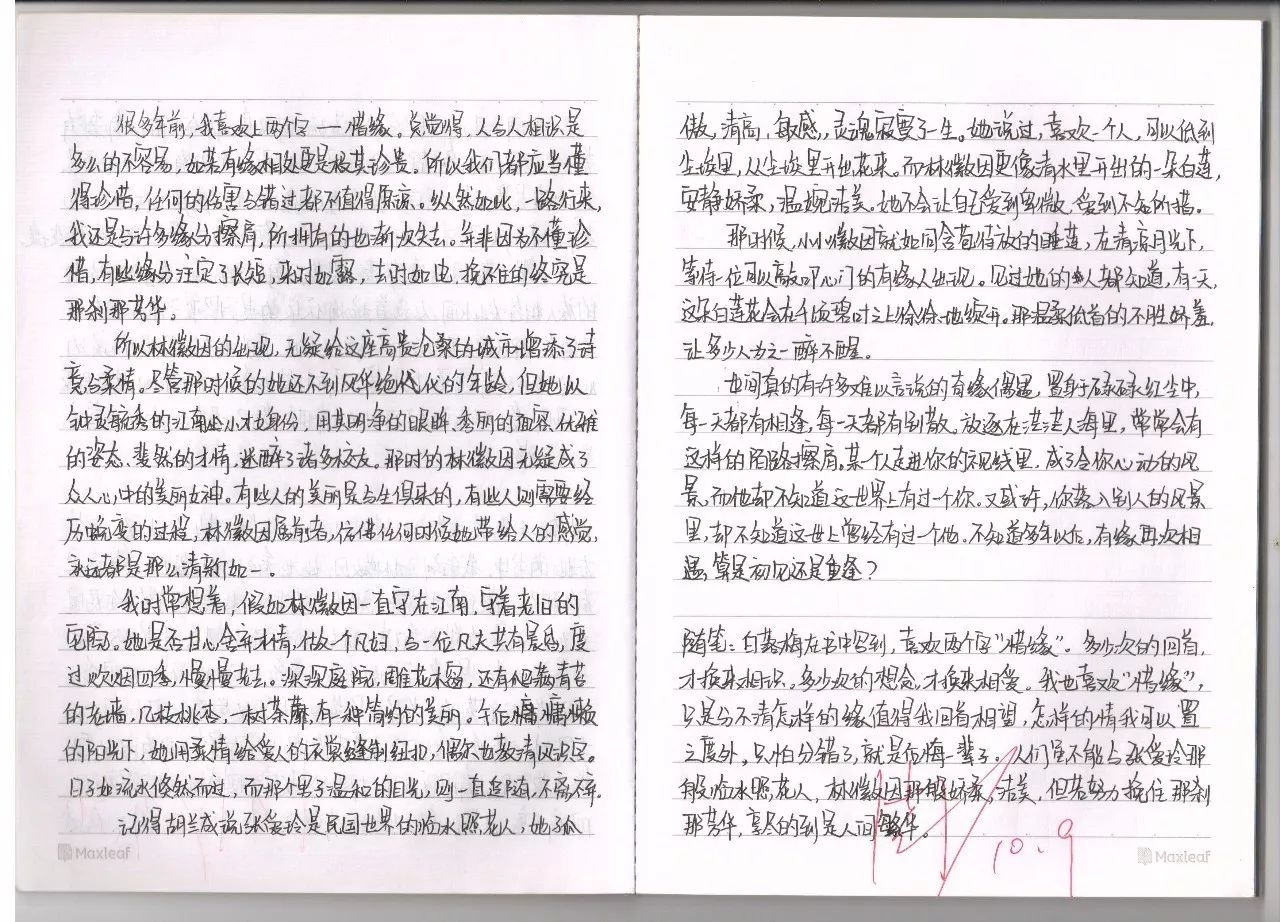 很多年前,我喜欢上两个字——惜缘。总觉得,人与人相识是
多么的不容易,如若有缘相处更是极其珍贵。所以我们都应当懂
得珍惜,任何的伤害与错过都不值得原谅。纵然如此,一路行来,
我还是与许多缘分擦肩,所拥有的也渐次失去。并非因为不懂珍
惜,有些缘份注定了长短,来时如露,去时如电,挽不住的终究是
那刹那芳华。
所以林徽因的出现,无疑给这座高贵沧桑的城市增添了诗
意与柔情。尽管那时候的她还不到风华绝代的年龄,但她以
钟灵毓秀的江南小才女身份,用其明净的眼眸、秀丽的面容、优雅
的姿态、斐然的才情,迷醉了诸多校友。那时的林徽因无疑成了
众人心中的美丽女神。有些人的美丽是与生俱来的,有些人则需要经
历蜕变的过程,林徽因属前者,仿佛任何时候她带给人的感觉,
永远都是那么清新如一。
我时常想着,假如林徽因一直守在江南,守着老旧的
宅院。她是否甘心舍弃才情,做一个凡妇,与一位凡夫共有晨昏,度
过炊烟四季,慢慢老去。深深庭院,雕花木窗,还有爬满青苔
的老墙,几枝桃杏,一树荼蘼,有一种简约的美丽。午后慵慵懒懒
的阳光下,她用柔情给爱人的衣裳缝制纽扣,偶尔也教清风识字。
日子如流水悠然而过,而那个男子温和的目光,则一直追随,不离不弃。
记得胡兰成说张爱玲是民国世界的临水照花人,她孤
傲,清高,敏感,灵魂寂寞了一生。她说过,喜欢一个人,可以低到
尘埃里,从尘埃里开出花来。而林徽因更像清水里开出的一朵白莲,
安静娇柔,温婉洁美。她不会让自己受到卑微,受到不知所措。
那时候,小小徽因就如同含苞待放的睡莲,在清凉月光下,
等待一位可以敲叩心门的有缘人出现。见过她的人都知道,有一天,
这朵白莲花会在千顷碧叶之上徐徐地绽开。那温柔低首的不胜娇羞,
让多少人为之一醉不醒。
世间真的有许多难以言说的有缘偶遇,置身于碌碌红尘中,
每一天都有相逢,每一天都有别散。放逐在茫茫人海里,常常会有
这样的陌路擦肩。某个人走进你的视线里,成了令你心动的风
景,而他却不知道这世界上有过一个你。又或许,你落入别人的风景
里,却不知道这世上曾经有过一个他。不知道多年以后,有缘再次相
遇,算是初见还是重逢?
随笔:白落梅在书中写到,喜欢两个字“惜缘”。多少次的回首,
才换来相识。多少次的想念,才换来相爱。我也喜欢“惜缘”,
只是分不清怎样的缘值得我回首相望,怎样的情我可以置
之度外。只怕分错了,就是后悔一辈子。人们虽不能与张爱玲那
般临水照花人,林徽因那般娇柔,洁美,但若努力挽住那刹
那芳华,享尽的到是人间繁华。
10.9
Maxleaf
Maxleaf